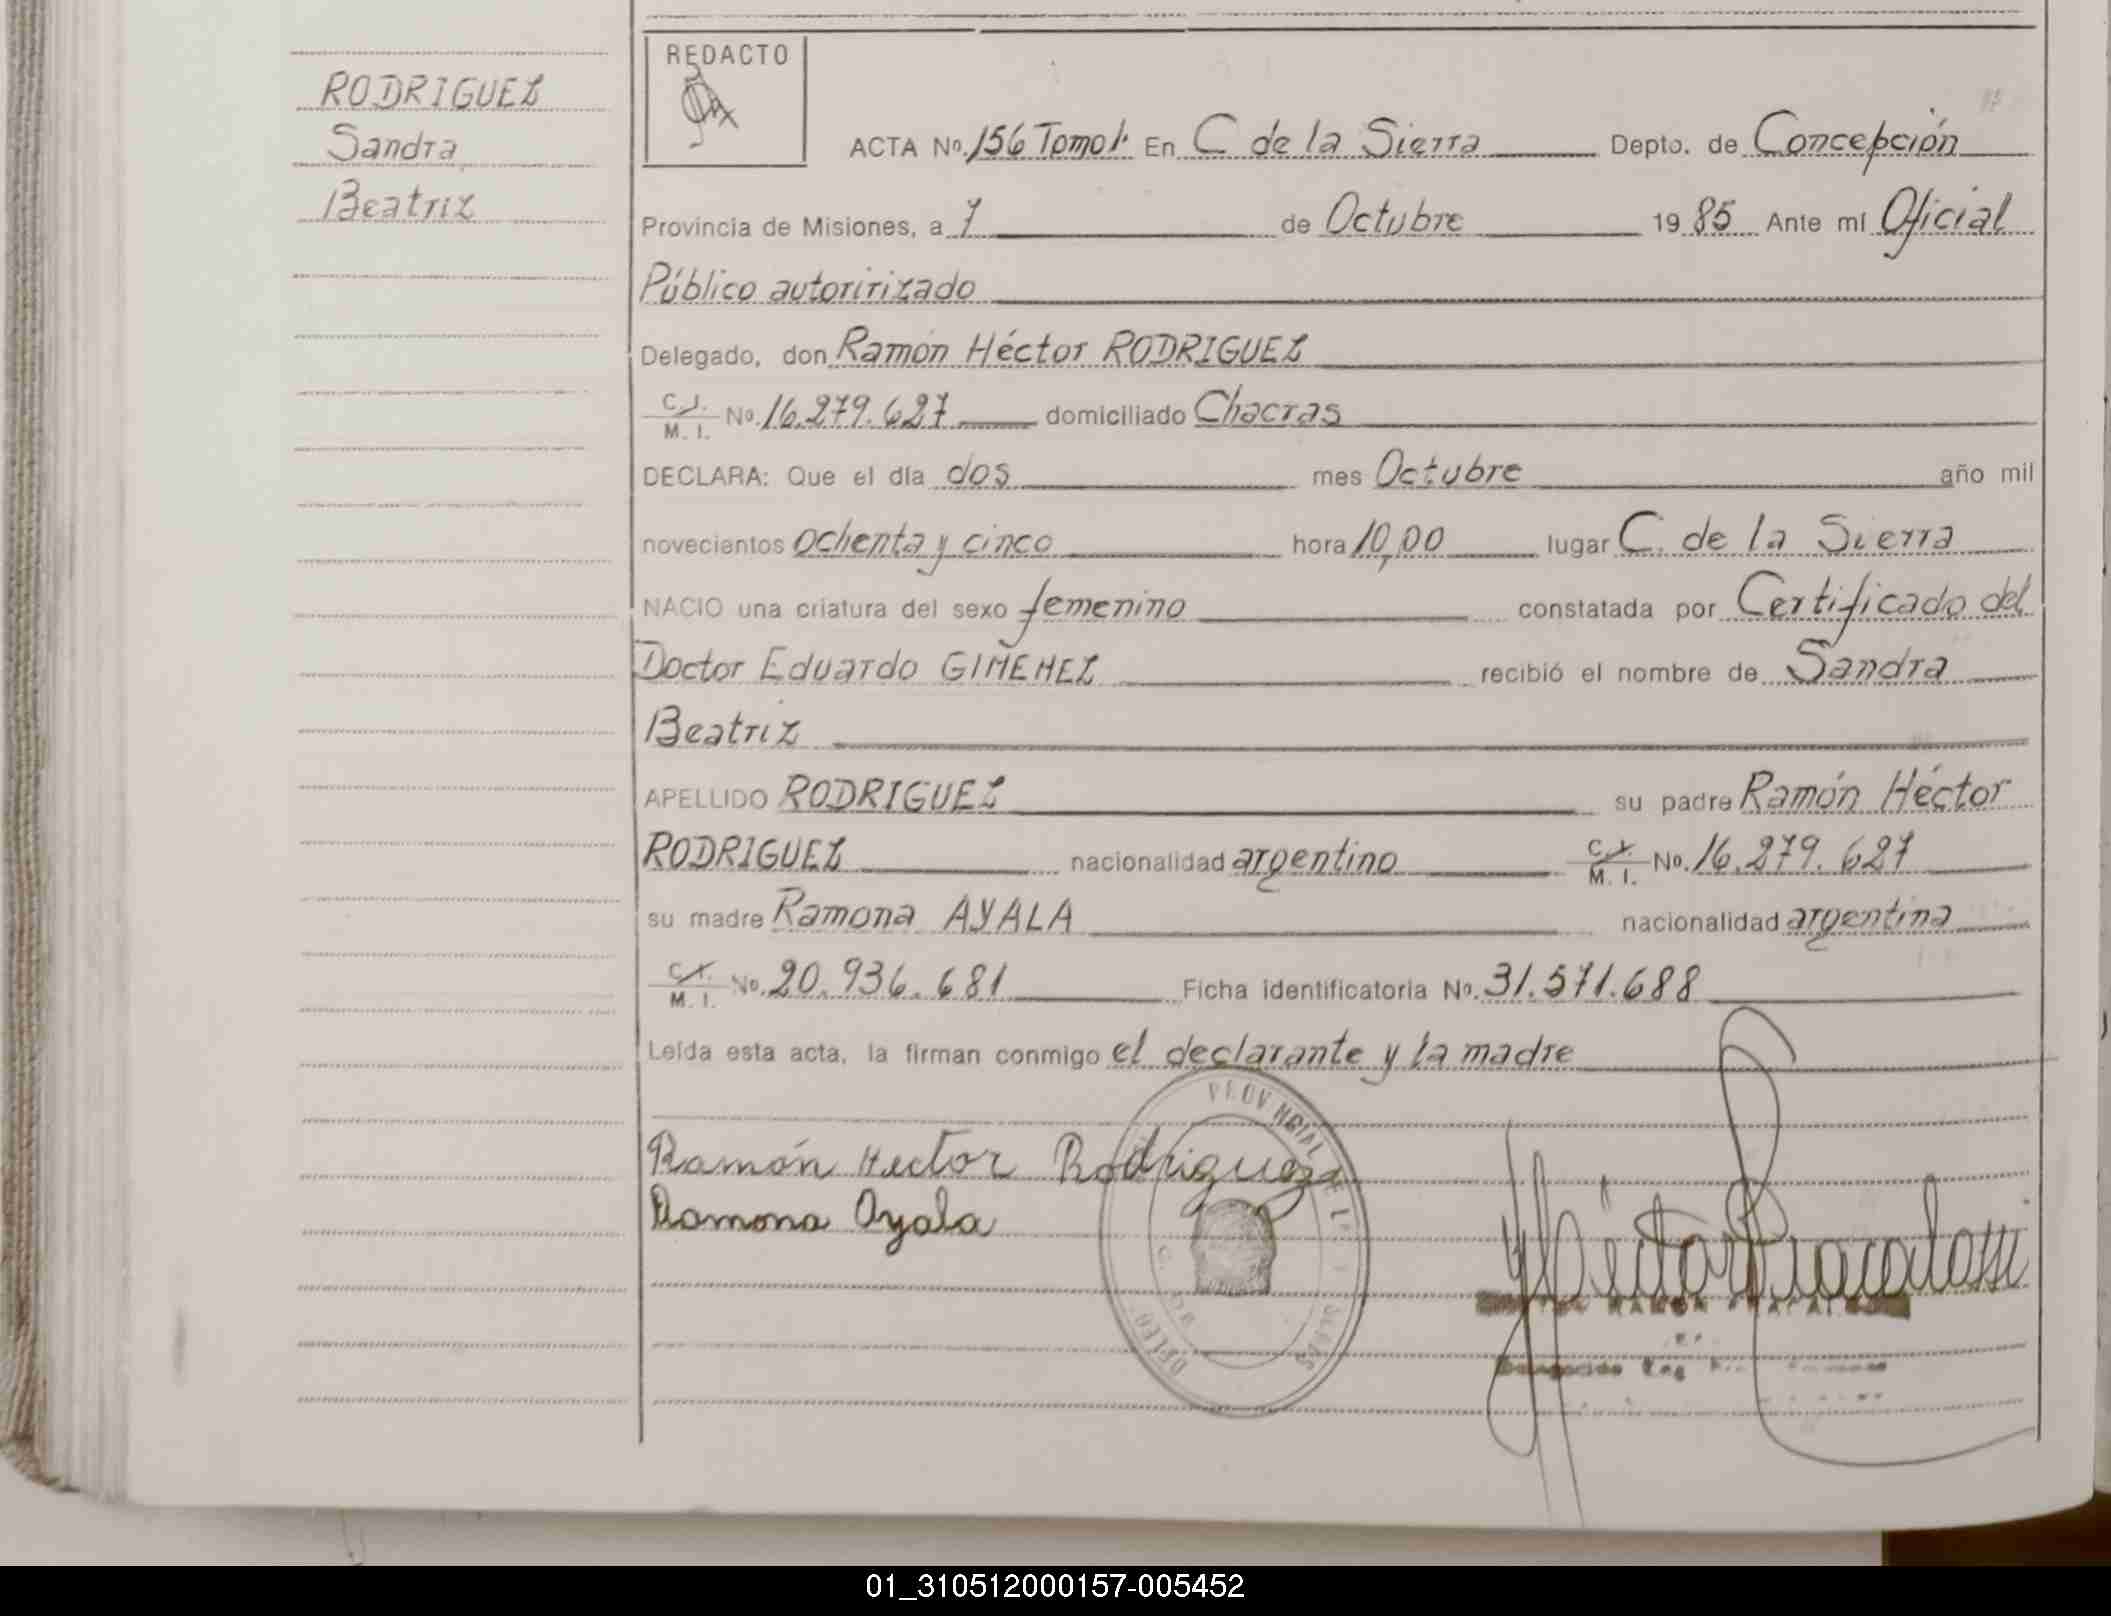 RODRIGUEZ
Sandra
Beatriz
REDACTO
ACTA No. 156 Tomo 1. En C de la Sierra Depto. de Concepción
Provincia de Misiones, a 7 de Octubre 19 85 Ante mí Oficial
Público autoririzado
Delegado, don Ramón Héctor RODRIGUEZ
C. I. M. I. No. 16.279.627 domiciliado Chacras
DECLARA: Que el día dos mes Octubre año mil
novecientos ochenta y cinco hora 10,00 lugar C. de la Sierra
NACIO una criatura del sexo femenino constatada por Certificado del
Doctor Eduardo GIMENEZ recibió el nombre de Sandra
Beatriz
APELLIDO RODRIGUEZ su padre Ramón Héctor
RODRIGUEZ nacionalidad argentino C. I. M. I. No. 16.279.627
su madre Ramona AYALA nacionalidad argentina
C. I. M. I. No. 20.936.681 Ficha identificatoria No. 31.571.688
Leída esta acta, la firman conmigo el declarante y la madre
Ramón Hector Rodriguez
Ramona Ayala
01_310512000157-005452